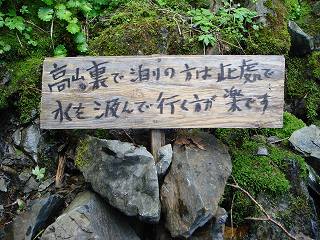 高山の裏で泊りの方は此處で
水を汲んで行く方が楽です